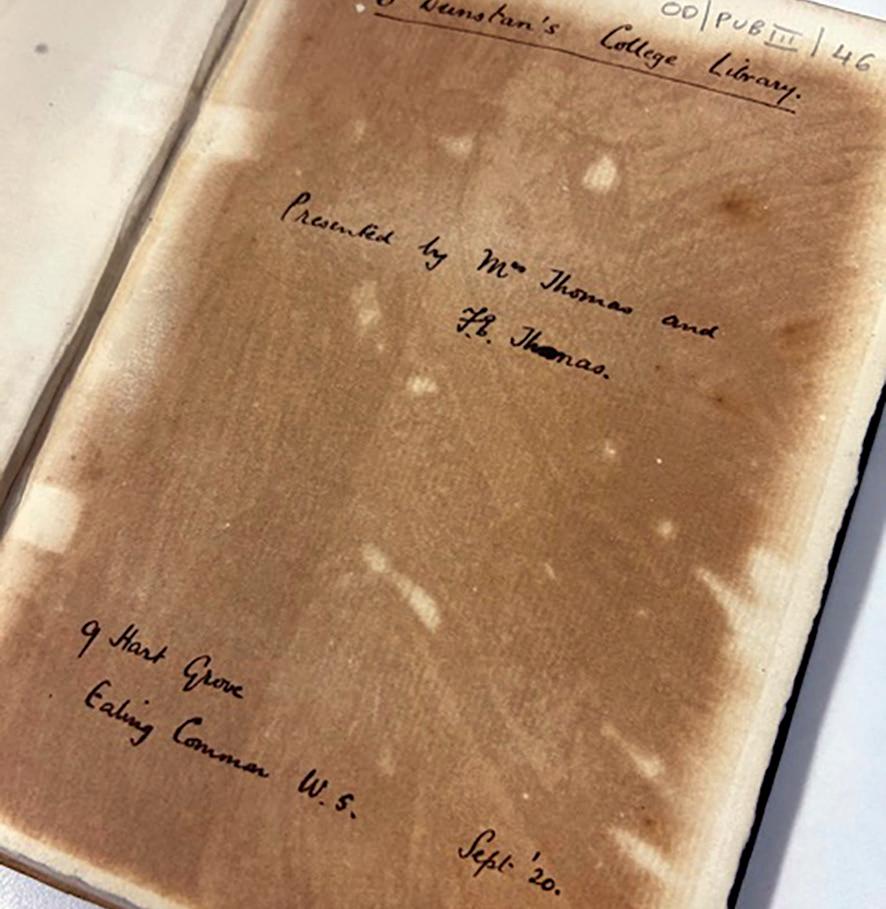 OD/PUB III/46
Dunstan's College Library.
Presented by Mrs Thomas and
Thomas.
9 Hart Grove
Ealing Common W.5.
Sept '20.